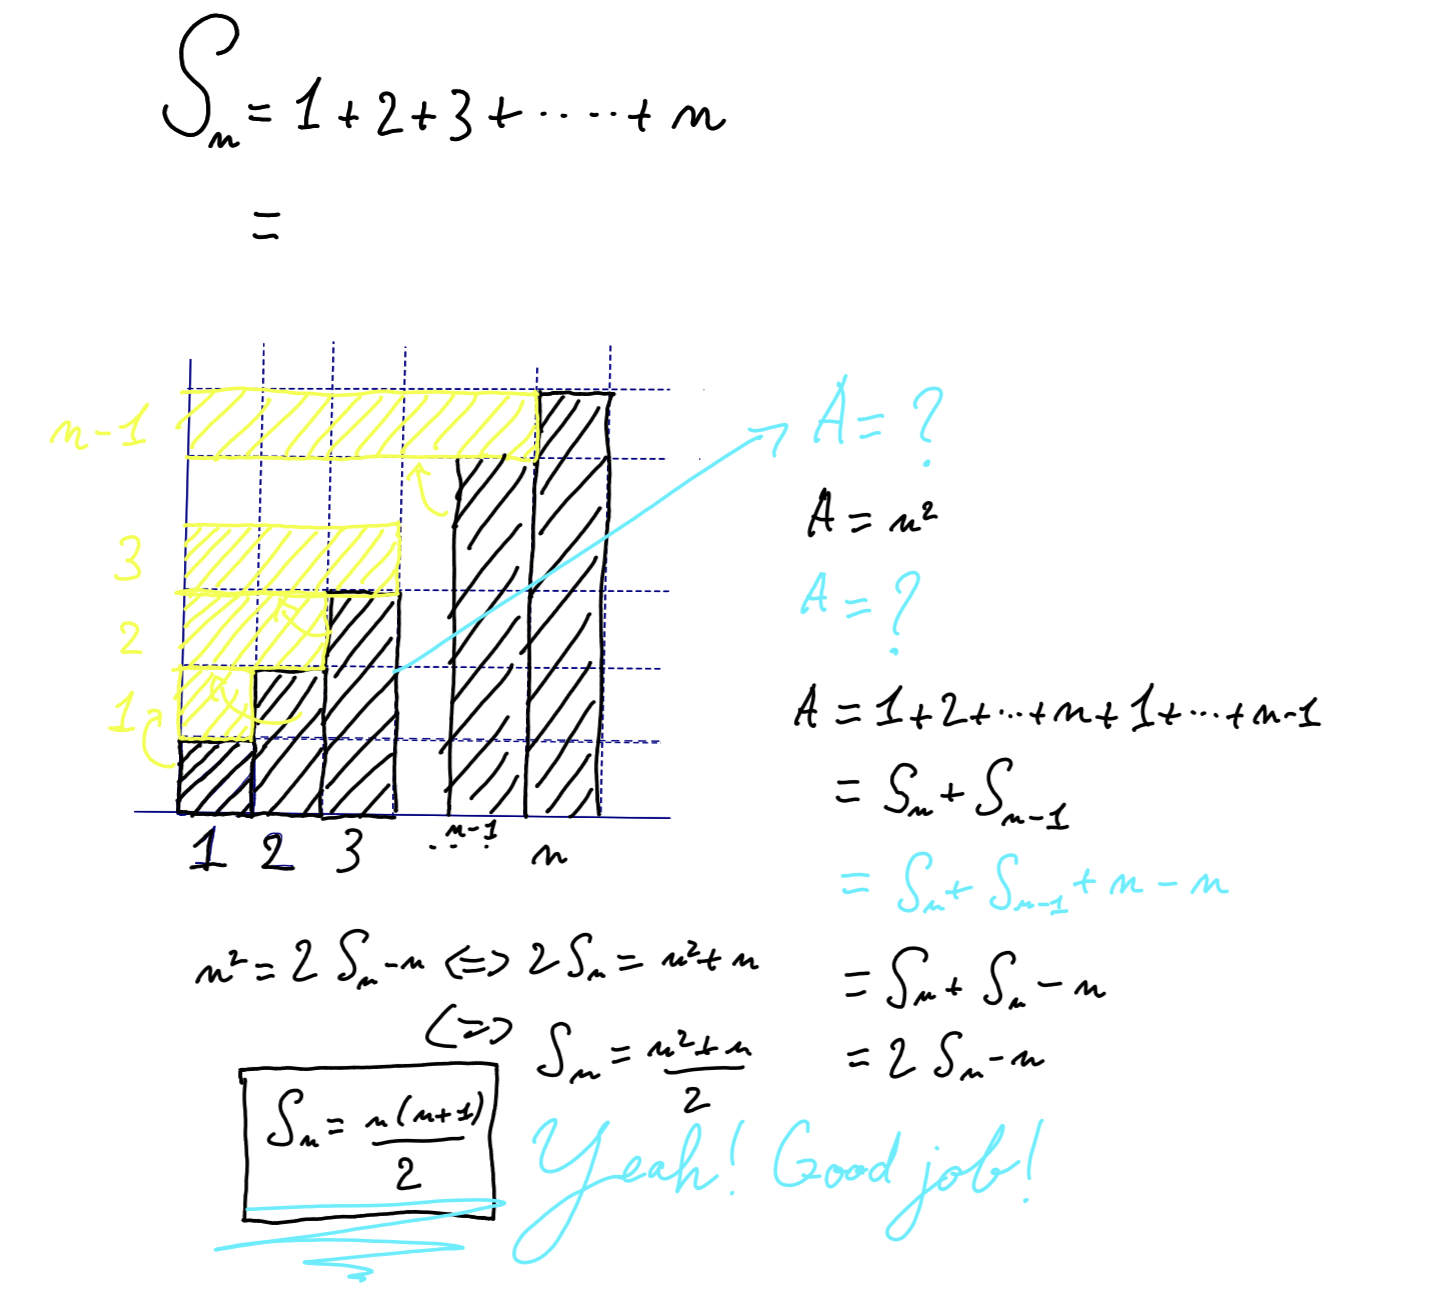 Sₙ = 1 + 2 + 3 + ····· + n
=
n-1
3
2
1
1 2 3 ... n-1 n
A = ?
A = n²
A = ?
A = 1 + 2 + ... + n + 1 + ... + n-1
= Sₙ + Sₙ₋₁
= Sₙ + Sₙ₋₁ + n - n
= Sₙ + Sₙ - n
= 2 Sₙ - n
n² = 2 Sₙ - n <=> 2 Sₙ = n² + n
<=> Sₙ = (n² + n)/2
Sₙ = n(n+1)/2
Yeah! Good job!